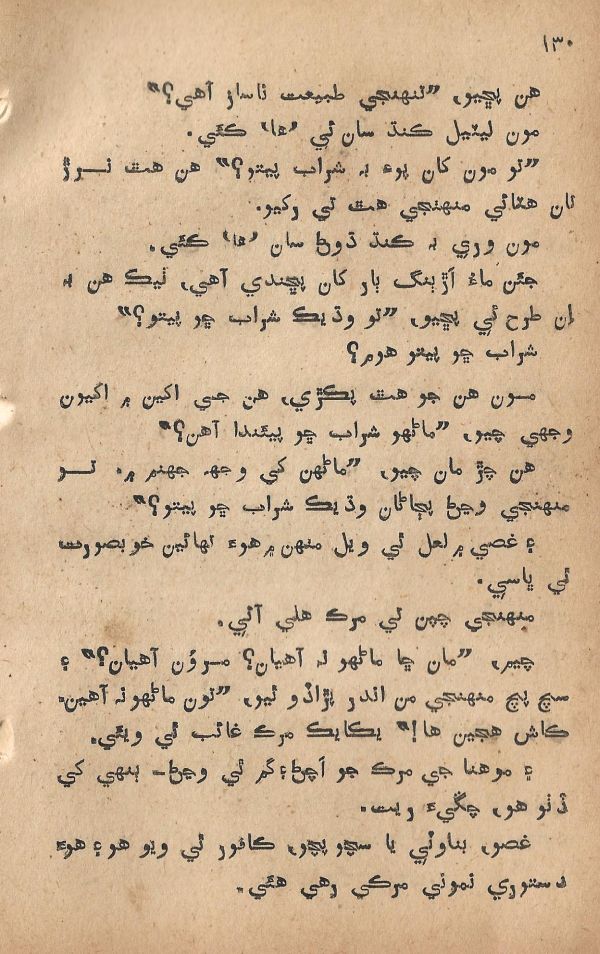 ۱۳۰
هن پڇيو، ”تنهنجي طبيعت ناساز آهي؟“
مون ليٽيل ڪنڌ سان ئي ’ها‘ ڪئي.
”تو مون کان پوءِ به شراب پيتو؟“ هن هٿ نرڙ
تان هٽائي منهنجي هٿ تي رکيو.
مون وري به ڪنڌ ڌوڻ سان ’ها‘ ڪئي.
جئن ماءُ اَڙٻنگ ٻار کان پڇندي آهي، ٺيڪ هن به
اِن طرح ئي پڇيو، ”تو وڌيڪ شراب ڇو پيتو؟“
شراب ڇو پيتو هوم؟
مون هن جو هٿ پڪڙي، هن جي اکين ۾ اکيون
وجهي چيو، ”ماڻهو شراب ڇو پيئندا آهن؟“
هن چڙ مان چيو، ”ماڻهن کي وجهه جهنم ۾. تو
منهنجي وڃڻ پڄاڻان وڌيڪ شراب ڇو پيتو؟“
۽ غصي ۾ لعل ٿي ويل منهن ۾ هوءَ نهائين خوبصورت
ٿي ڀاسي.
منهنجي چپن تي مرڪ هلي آئي.
چيم، ”مان ڇا ماڻهو نه آهيان؟ مروُن آهيان؟“ ۽
سچ پچ منهنجي من اندر پڙاڏو ٿيو، ”تون ماڻهو نه آهين.
ڪاش هجين ها!“ يڪايڪ مرڪ غائب ٿي ويئي.
۽ موهنا جي مرڪ جو اَچڻ ۽ گم ٿي وڃڻ۔ ٻنهي کي
ڏٺو هو، چڱيءَ ريت.
غصو، بناوٽي يا سچو پچو، ڪافور ٿي ويو هو ۽ هوءَ
دستوري نموني مرڪي رهي هئي.